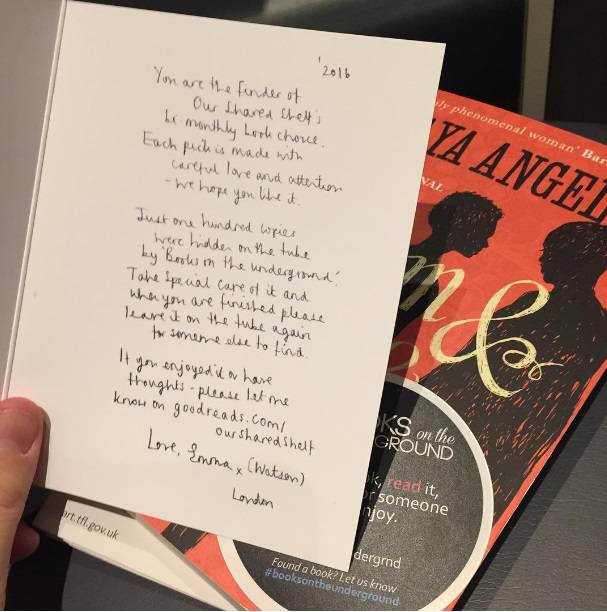 '2016
You are the finder of
Our Shared Shelf's
bi monthly book choice.
Each pick is made with
careful love and attention
- we hope you like it.
Just one hundred copies
were hidden on the tube
by 'Books on the underground'.
Take special care of it and
when you are finished please
leave it on the tube again
for someone else to find.
If you enjoyed it or have
thoughts - please let me
know on goodreads.com/
oursharedshelf
Love, Emma x (Watson)
London
phenomenal woman' Bar
YA ANGEL
NAL
m &
OKS on the
GROUND
k, read it,
or someone
njoy.
dergrnd
Found a book? Let us know
#booksontheunderground
art.tfl.gov.uk